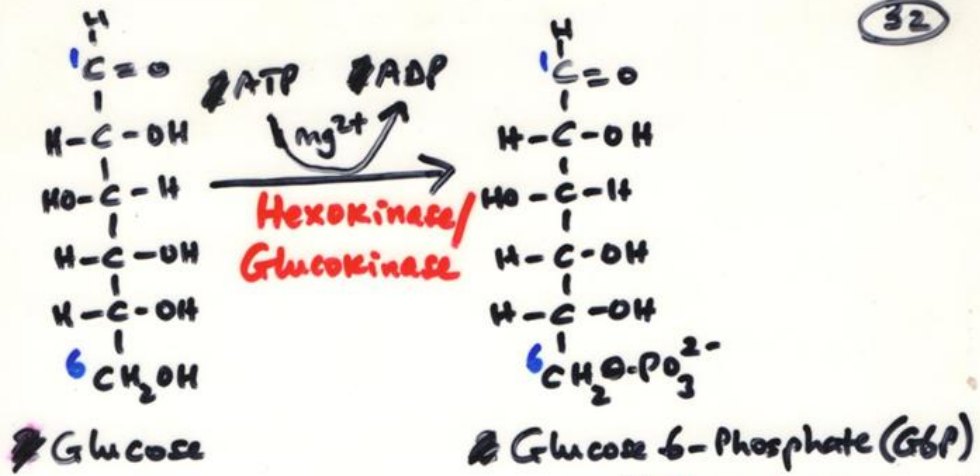 32
H
1C=O
H-C-OH
HO-C-H
H-C-OH
H-C-OH
6CH2OH
Glucose
ATP ADP
mg2+
Hexokinase/
Glucokinase
H
1C=O
H-C-OH
HO-C-H
H-C-OH
H-C-OH
6CH2O-PO3 2-
Glucose 6-Phosphate (G6P)